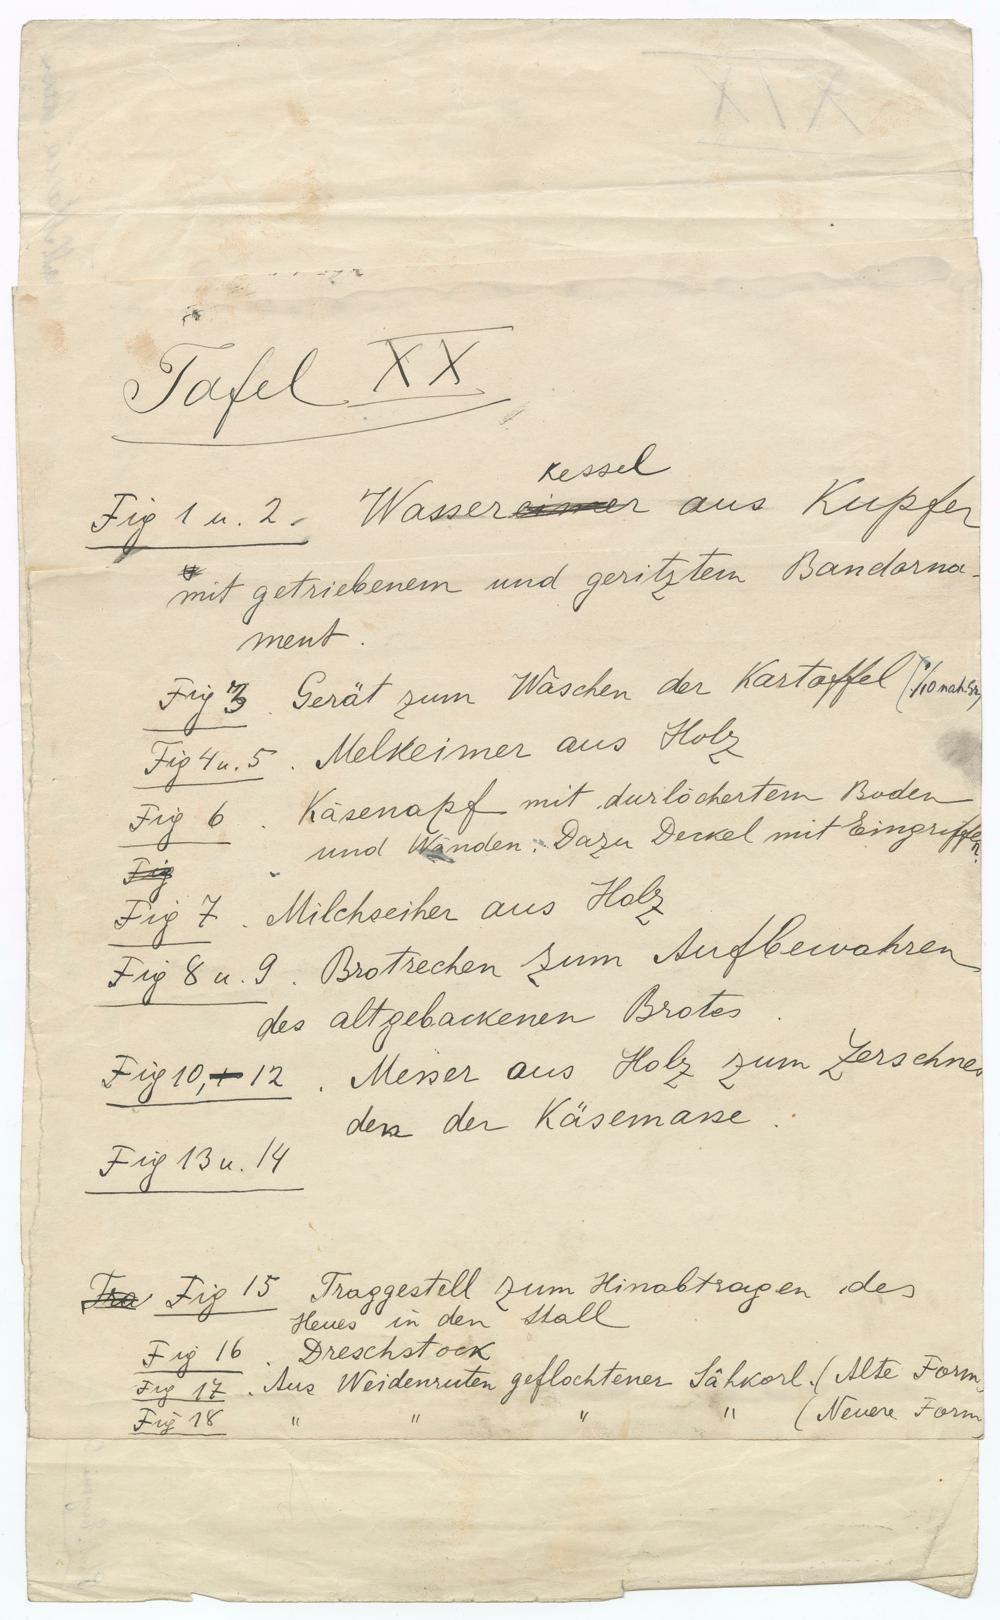 Tafel XX
kessel
Fig 1 u. 2. Wassereimer aus Kupfer
mit getriebenem und geritztem Bandorna-
ment.
Fig 3. Gerät zum Waschen der Kartoffel (1/10 nat. Gr.)
Fig 4 u. 5. Melkeimer aus Holz
Fig 6. Käsenapf mit durlöchertem Boden
und Wänden. Dazu Deckel mit Eingriffen.
Fig
Fig 7. Milchseiher aus Holz
Fig 8 u. 9. Brotrechen zum Aufbewahren
des altgebackenen Brotes.
Fig 10, + 12. Messer aus Holz zum Zerschnei
den der Käsemasse.
Fig 13 u. 14
Tra Fig 15 Traggestell zum Hinabtragen des
Heues in den Stall
Fig 16. Dreschstock
Fig 17. Aus Weidenruten geflochtener Sähkorb. (Alte Form)
Fig 18 " " " " (Neuere Form)